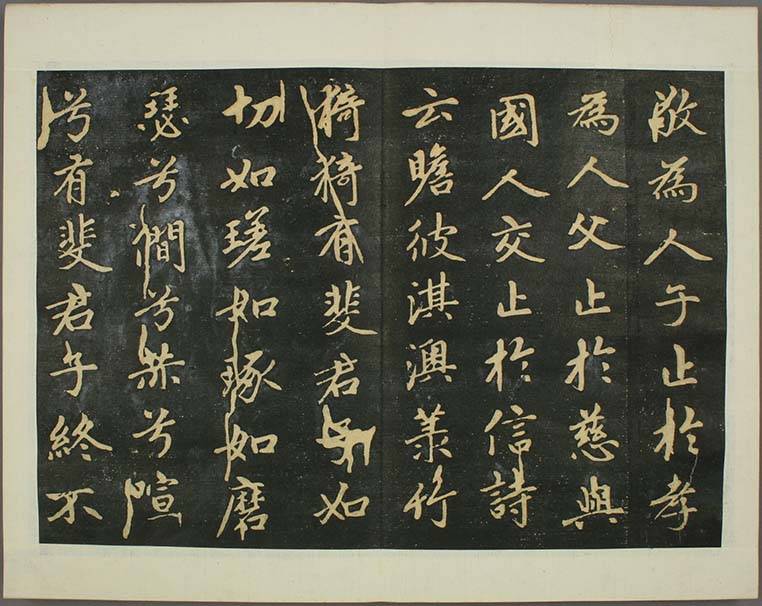 敬為人子止於孝
為人父止於慈與
國人交止於信詩
云瞻彼淇澳菉竹
猗猗有斐君子如
切如瑳如琢如磨
瑟兮僩兮赫兮喧
兮有斐君子終不